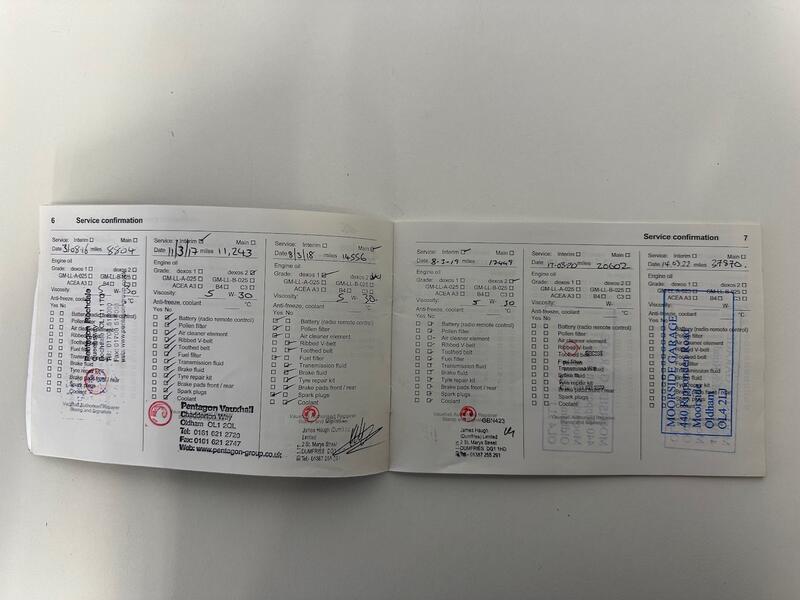 6 Service confirmation
Service: Interim Main
Date 31/08/16 miles 8804
Engine oil
Grade: dexos 1 dexos 2
GM-LL-A-025 GM-LL-B-025
ACEA A3 B4 C3
Viscosity:
Anti-freeze, coolant °C
Yes No
Pentagon Rochdale
Service: Interim Main
Date 11/3/17 miles 11,243
Engine oil
Grade: dexos 1 dexos 2
GM-LL-A-025 GM-LL-B-025
ACEA A3 B4 C3
Viscosity: 5 W- 30
Anti-freeze, coolant °C
Yes No
Battery (radio remote control)
Pollen filter
Air cleaner element
Ribbed V-belt
Toothed belt
Fuel filter
Transmission fluid
Brake fluid
Tyre repair kit
Brake pads front / rear
Spark plugs
Coolant
Pentagon Vauxhall
Chadderton Way
Oldham OL1 2QL
Tel: 0161 621 2720
Fax: 0161 621 2747
Web: www.pentagon-group.co.uk
Service: Interim Main
Date 8/3/18 miles 14556
Engine oil
Grade: dexos 1 dexos 2
GM-LL-A-025 GM-LL-B-025
ACEA A3 B4 C3
Viscosity: 5 W- 30
Anti-freeze, coolant °C
Yes No
Battery (radio remote control)
Pollen filter
Air cleaner element
Ribbed V-belt
Toothed belt
Fuel filter
Transmission fluid
Brake fluid
Tyre repair kit
Brake pads front / rear
Spark plugs
Coolant
James Haugh
Limited
2 St. Marys Street
DUMFRIES DG1
Tel:- 01387 255 291
Service confirmation 7
Service: Interim Main
Date 8-3-19 miles 17449
Engine oil
Grade: dexos 1 dexos 2
GM-LL-A-025 GM-LL-B-025
ACEA A3 B4 C3
Viscosity: 5 W- 30
Anti-freeze, coolant °C
Yes No
Battery (radio remote control)
Pollen filter
Air cleaner element
Ribbed V-belt
Toothed belt
Fuel filter
Transmission fluid
Brake fluid
Tyre repair kit
Brake pads front / rear
Spark plugs
Coolant
Vauxhall Authorised Repairer
GBN423
James Haugh
(Dumfries) Limited
2 St. Marys Street
DUMFRIES DG1 1HD
Tel:- 01387 255 291
Service: Interim Main
Date 17-03-20 miles 20602
Engine oil
Grade: dexos 1 dexos 2
GM-LL-A-025 GM-LL-B-025
ACEA A3 B4 C3
Viscosity: W-
Anti-freeze, coolant °C
Yes No
Battery (radio remote control)
Pollen filter
Air cleaner element
Ribbed V-belt
Toothed belt
Fuel filter
Transmission fluid
Brake fluid
Tyre repair kit
Brake pads front / rear
Spark plugs
Coolant
Service: Interim Main
Date 14.03.22 miles 27970.
Engine oil
Grade: dexos 1 dexos 2
GM-LL-A-025 GM-LL-B-025
ACEA A3 B4 C3
Viscosity:
Anti-freeze, coolant °C
Yes No
MOORSIDE GARAGE
440 Ripponden Road
Moorside
Oldham
OL4 2LJ